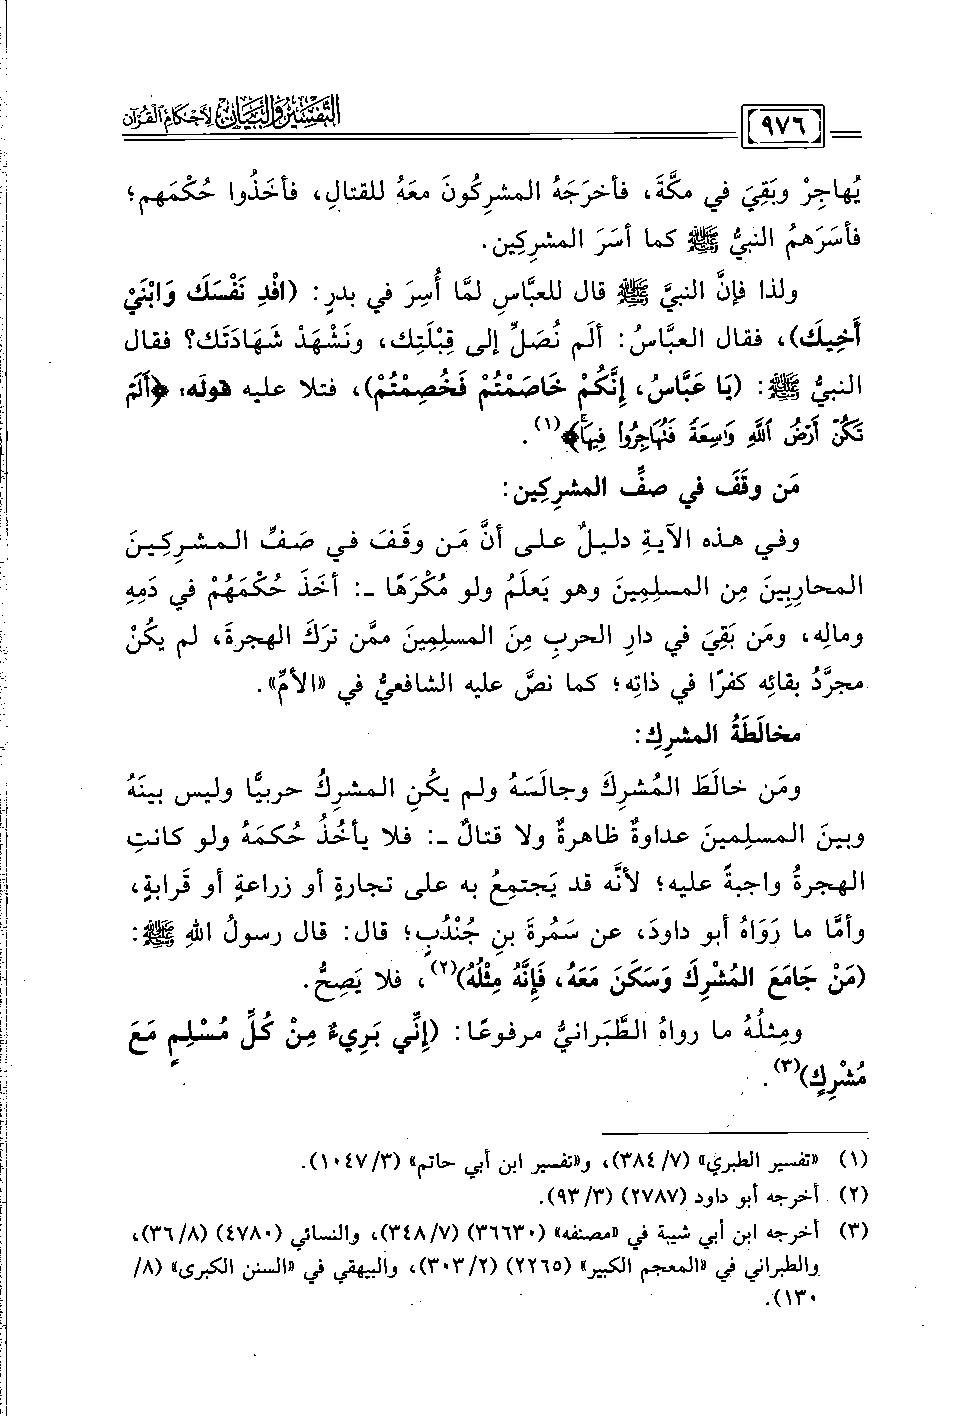 التفسير والبيان لأحكام القرآن
٩٧٦
يُهاجِرْ وبَقِيَ في مكَّةَ، فأخرَجَهُ المشرِكُونَ معَهُ للقتالِ، فأخَذُوا حُكْمَهم؛
فأسَرَهمُ النبيُّ ﷺ كما أسَرَ المشرِكِين.
ولذا فإنَّ النبيَّ ﷺ قال للعبَّاسِ لمَّا أُسِرَ في بدرٍ: (افْدِ نَفْسَكَ وَابْنَيْ
أَخِيكَ)، فقال العبَّاسُ: ألم نُصَلِّ إلى قِبْلَتِك، ونَشْهَدْ شَهَادَتَك؟ فقال
النبيُّ ﷺ: (يَا عَبَّاسُ، إِنَّكُمْ خَاصَمْتُمْ فَخُصِمْتُمْ)، فتلا عليه قولَه: ﴿أَلَمْ
تَكُنْ أَرْضُ ٱللَّهِ وَٰسِعَةً فَتُهَاجِرُوا۟ فِيهَا﴾(١).
مَن وقَفَ في صفِّ المشرِكِين:
وفي هذه الآيةِ دليلٌ على أنَّ مَن وقَفَ في صَفِّ المشرِكِينَ
المحارِبِينَ مِن المسلِمِينَ وهو يَعلَمُ ولو مُكْرَهًا ـ: أخَذَ حُكْمَهُمْ في دَمِهِ
ومالِه، ومَن بَقِيَ في دارِ الحربِ مِنَ المسلِمِينَ ممَّن ترَكَ الهجرةَ، لم يكُنْ
مجرَّدُ بقائِه كفرًا في ذاتِه؛ كما نصَّ عليه الشافعيُّ في «الأمِّ».
مخالَطَةُ المشرِكِ:
ومَن خالَطَ المُشرِكَ وجالَسَهُ ولم يكُنِ المشرِكُ حربيًّا وليس بينَهُ
وبينَ المسلِمِينَ عداوةٌ ظاهرةٌ ولا قتالٌ ـ: فلا يأخُذُ حُكمَهُ ولو كانتِ
الهجرةُ واجبةً عليه؛ لأنَّه قد يَجتمِعُ به على تجارةٍ أو زراعةٍ أو قرابةٍ،
وأمَّا ما رَوَاهُ أبو داودَ، عن سَمُرةَ بنِ جُنْدُبٍ؛ قال: قال رسولُ اللهِ ﷺ:
(مَنْ جَامَعَ المُشْرِكَ وَسَكَنَ مَعَهُ، فَإِنَّهُ مِثْلُهُ)(٢)، فلا يَصِحُّ.
ومِثلُهُ ما رواهُ الطَّبَرانيُّ مرفوعًا: (إِنِّي بَرِيءٌ مِنْ كُلِّ مُسْلِمٍ مَعَ
مُشْرِكٍ)(٣).
(١) «تفسير الطبري» (٧/ ٣٨٤)، و«تفسير ابن أبي حاتم» (٣/ ١٠٤٧).
(٢) أخرجه أبو داود (٢٧٨٧) (٣/ ٩٣).
(٣) أخرجه ابن أبي شيبة في «مصنفه» (٣٦٦٣٠) (٧/ ٣٤٨)، والنسائي (٤٧٨٠) (٨/ ٣٦)،
والطبراني في «المعجم الكبير» (٢٢٦٥) (٢/ ٣٠٣)، والبيهقي في «السنن الكبرى» (٨/
١٣٠).